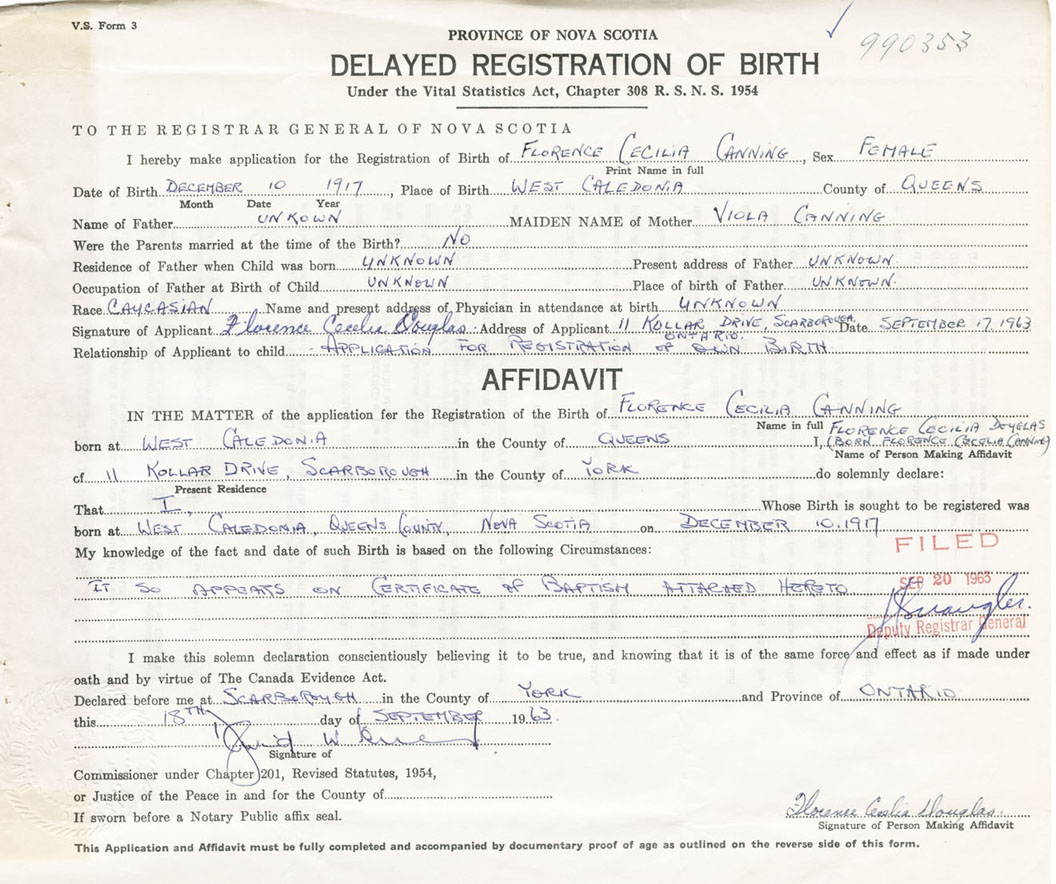 V.S. Form 3
990353
PROVINCE OF NOVA SCOTIA
DELAYED REGISTRATION OF BIRTH
Under the Vital Statistics Act, Chapter 308 R. S. N. S. 1954
TO THE REGISTRAR GENERAL OF NOVA SCOTIA
I hereby make application for the Registration of Birth of FLORENCE CECILIA CANNING, Sex FEMALE
Print Name in full
Date of Birth DECEMBER 10 1917, Place of Birth WEST CALEDONIA County of QUEENS
Month Date Year
Name of Father UNKOWN MAIDEN NAME of Mother VIOLA CANNING
Were the Parents married at the time of the Birth? NO
Residence of Father when Child was born UNKNOWN Present address of Father UNKNOWN.
Occupation of Father at Birth of Child UNKNOWN Place of birth of Father UNKNOWN.
Race CAUCASIAN Name and present address of Physician in attendance at birth UNKNOWN
Signature of Applicant Florence Cecelia Douglas Address of Applicant 11 KOLLAR DRIVE, SCARBOROUGH, Date SEPTEMBER 17, 1963
ONTARIO.
Relationship of Applicant to child - APPLICATION FOR REGISTRATION OF OWN BIRTH.
AFFIDAVIT
IN THE MATTER of the application for the Registration of the Birth of FLORENCE CECILIA CANNING
Name in full FLORENCE CECILIA DOUGLAS
born at WEST CALEDONIA in the County of QUEENS I, (BORN FLORENCE CECELIA CANNING)
Name of Person Making Affidavit
of 11 KOLLAR DRIVE, SCARBOROUGH in the County of YORK do solemnly declare:
Present Residence
That I, Whose Birth is sought to be registered was
born at WEST CALEDONIA, QUEENS COUNTY, NOVA SCOTIA on DECEMBER 10, 1917
My knowledge of the fact and date of such Birth is based on the following Circumstances:
FILED
IT SO APPEARS ON CERTIFICATE OF BAPTISM ATTACHED HERETO
SEP 20 1963
Deputy Registrar General
I make this solemn declaration conscientiously believing it to be true, and knowing that it is of the same force and effect as if made under
oath and by virtue of The Canada Evidence Act.
Declared before me at SCARBOROUGH in the County of YORK and Province of ONTARIO
this 18TH day of SEPTEMBER 1963.
David W
Signature of
Commissioner under Chapter 201, Revised Statutes, 1954,
or Justice of the Peace in and for the County of
If sworn before a Notary Public affix seal.
Florence Cecelia Douglas.
Signature of Person Making Affidavit
This Application and Affidavit must be fully completed and accompanied by documentary proof of age as outlined on the reverse side of this form.